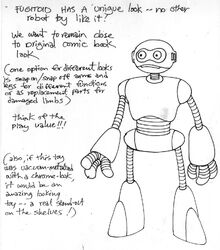 - FUGITOID HAS A "unique look -- no other
robot toy like it!
we want to remain close
to original comic book
look
(one option for different looks
is snap on/snap off arms and
legs for different functions
or as replacement parts for
damaged limbs)
think of the
play value!!!
(also, if this toy
was vacuum-metalized
with a chrome-look,
it would be an
amazing looking
toy -- a real stand-out
on the shelves!)